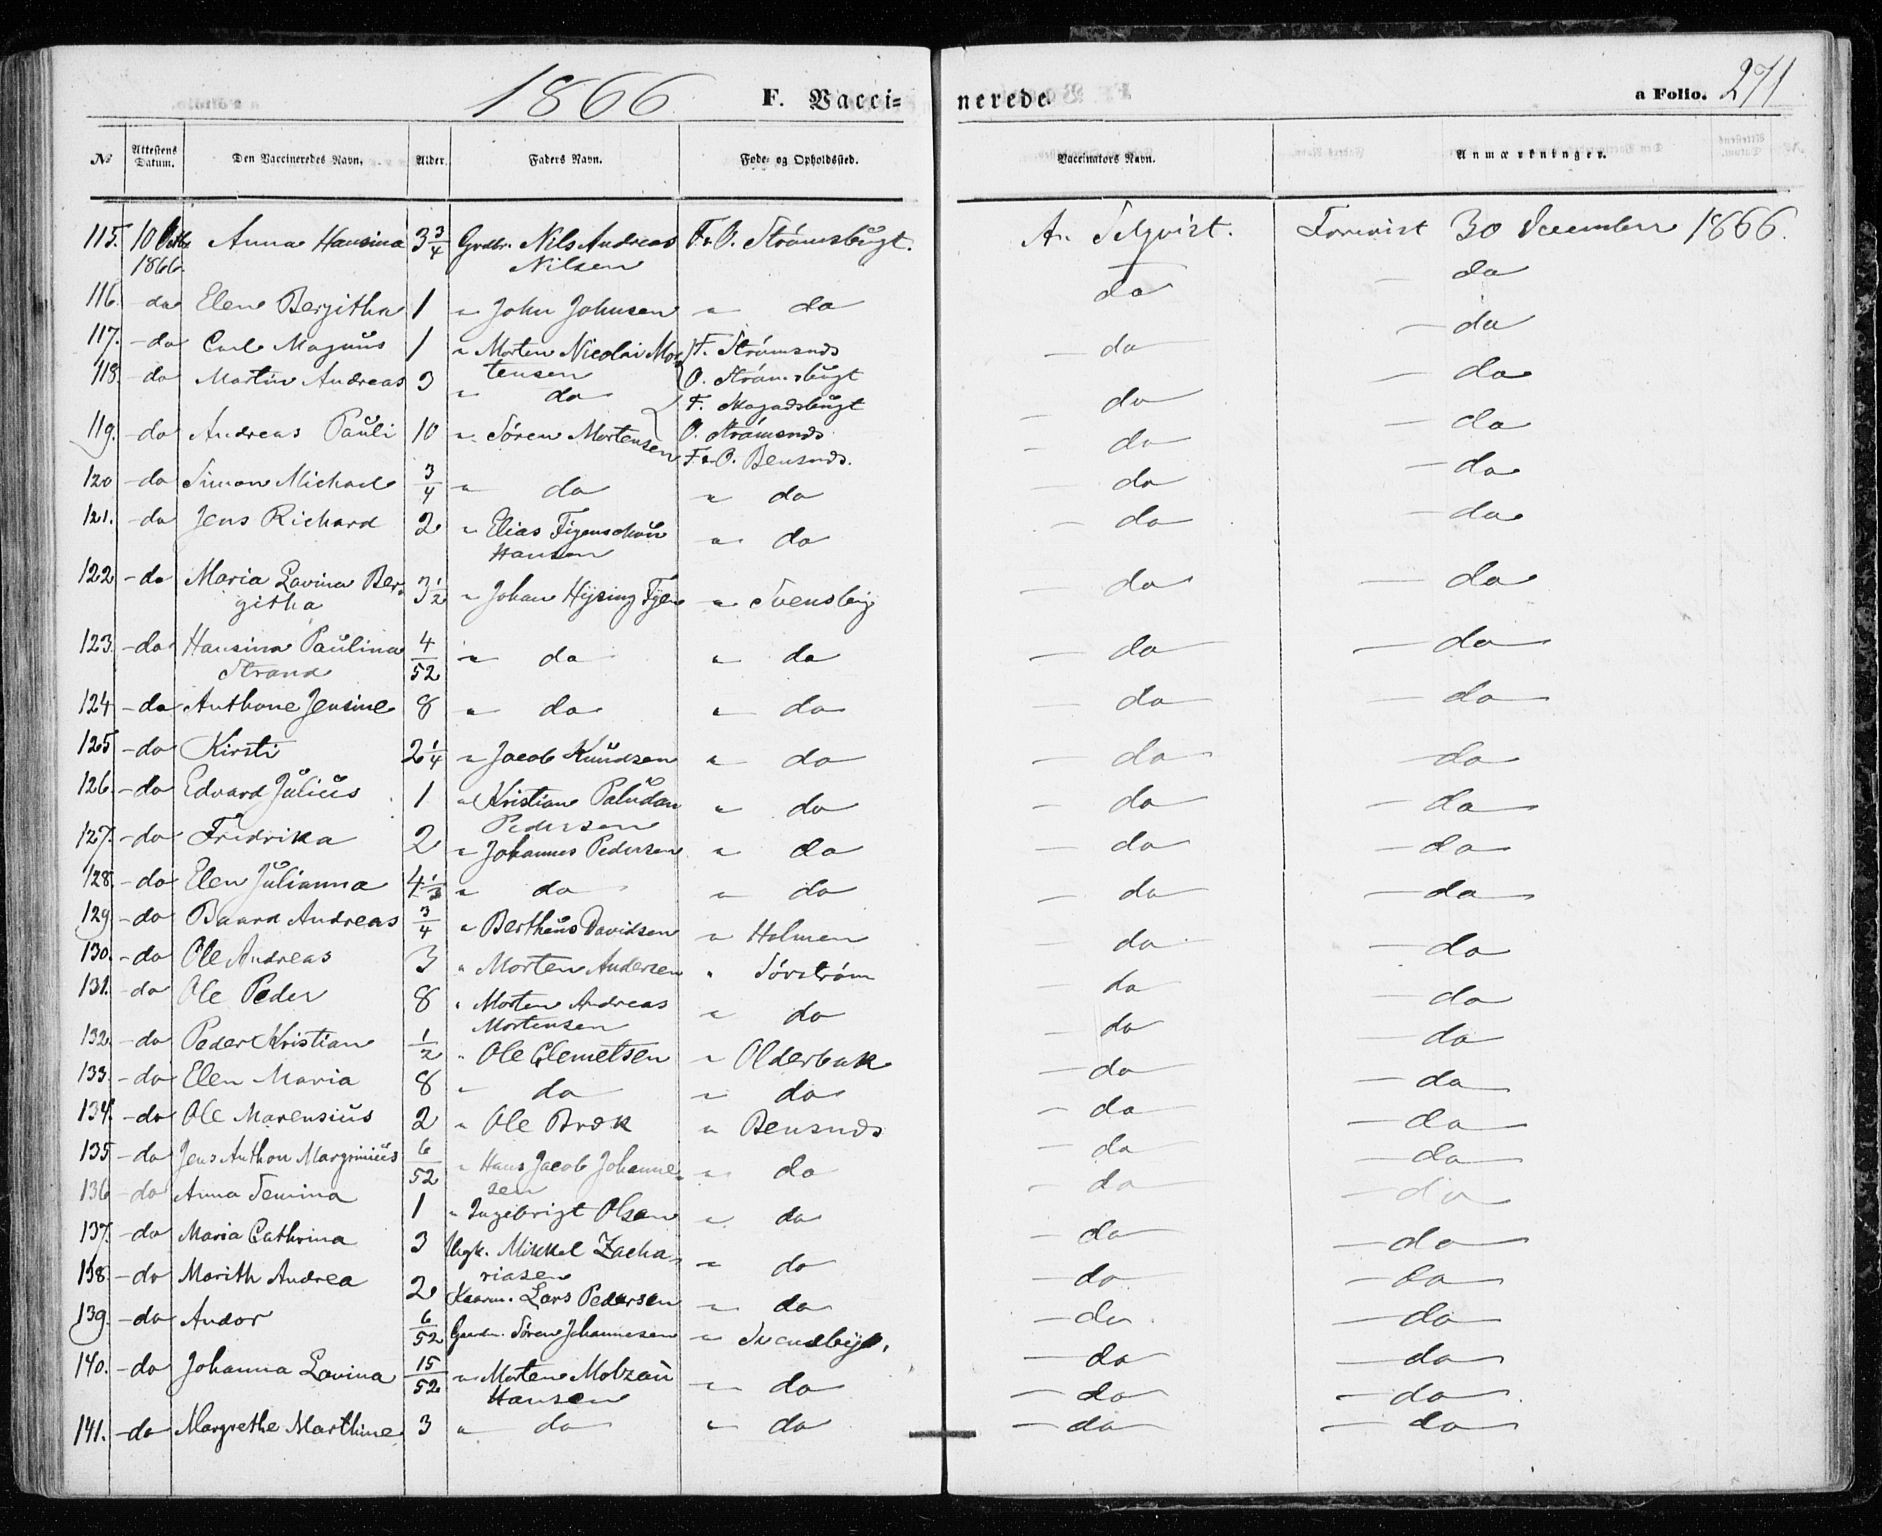 1866 F. Vacci=
nerede. a Folio. 271
No Attestens Datum. Den Vaccineredes Navn. Alder. Faders Navn. Føde- og Opholdssted. Vaccinators Navn. Anmærkninger.
115. 10 Octb. 1866 Anna Hansina 3 3/4 Grdbr. Nils Andreas Nilsen F. & O. Strömsbügt. A. Selqvist. Forevist 30 December 1866.
116. - do Elen Bergitha 1 " John Johnsen " do do - do
117. - do Carl Magnus 1 " Morten Nicolai Mortensen F. Strömsnds O. Strömsbügt - do - do
118. - do Martin Andreas 3 " do F. Skogadsbügt O. Strömsnds - do - do
119. - do Andreas Paüli 10 " Sören Mortensen F. & O. Bensnds. - do - do
120 - do Simon Michael 3/4 " do " do - do - do
121. - do Jens Richard 2 " Elias Figenschoü Hansen " do - do - do
122 - do Maria Lovina Bergitha 3 1/2 " Johan Hysing Fygen " Svensby - do - do
123. - do Hansina Paülina Strand 4/52 " do " do - do - do
124 - do Anthone Jensine 8 " do " do - do - do
125 - do Kirsti 2 1/4 " Jacob Knüdsen " do - do - do
126. - do Edvard Jülius 1 " Kristian Palüdan Pedersen " do - do - do
127. - do Fredrika 2 " Johannes Pedersen " do - do - do
128. - do Elen Jülianna 4 1/3 " do " do - do - do
129 - do Baard Andreas 3/4 " Bertheüs Davidsen " Holmen - do - do
130. - do Ole Andreas 3 " Morten Andersen " Sörström - do - do
131. - do Ole Peder 8 " Morten Andreas Mortensen " do - do - do
132. - do Peder Kristian 1/2 " Ole Clemetsen " Olderbak - do - do
133. - do Elen Maria 8 " do " do - do - do
134. - do Ole Marensiüs 2 " Ole Bræk " Bensnds - do - do
135 - do Jens Anthon Margriniüs 6/52 " Hans Jacob Johannesen " do - do - do
136 - do Anna Semina 1 " Ingebrigt Olsen " do - do - do
137. - do Maria Cathrina 3 Ungk. Mikkel Zachariasen " do - do - do
138. - do Marith Andrea 2 Kaarm. Lars Pedersen " do - do - do
139. - do Andor 6/52 Gaardm. Sören Johannesen " Svendsbye. - do - do
140. - do Johanna Lovina 15/52 " Morten Molzaü Hansen " do - do - do
141. - do Margrethe Marthine 3 " do " do - do - do